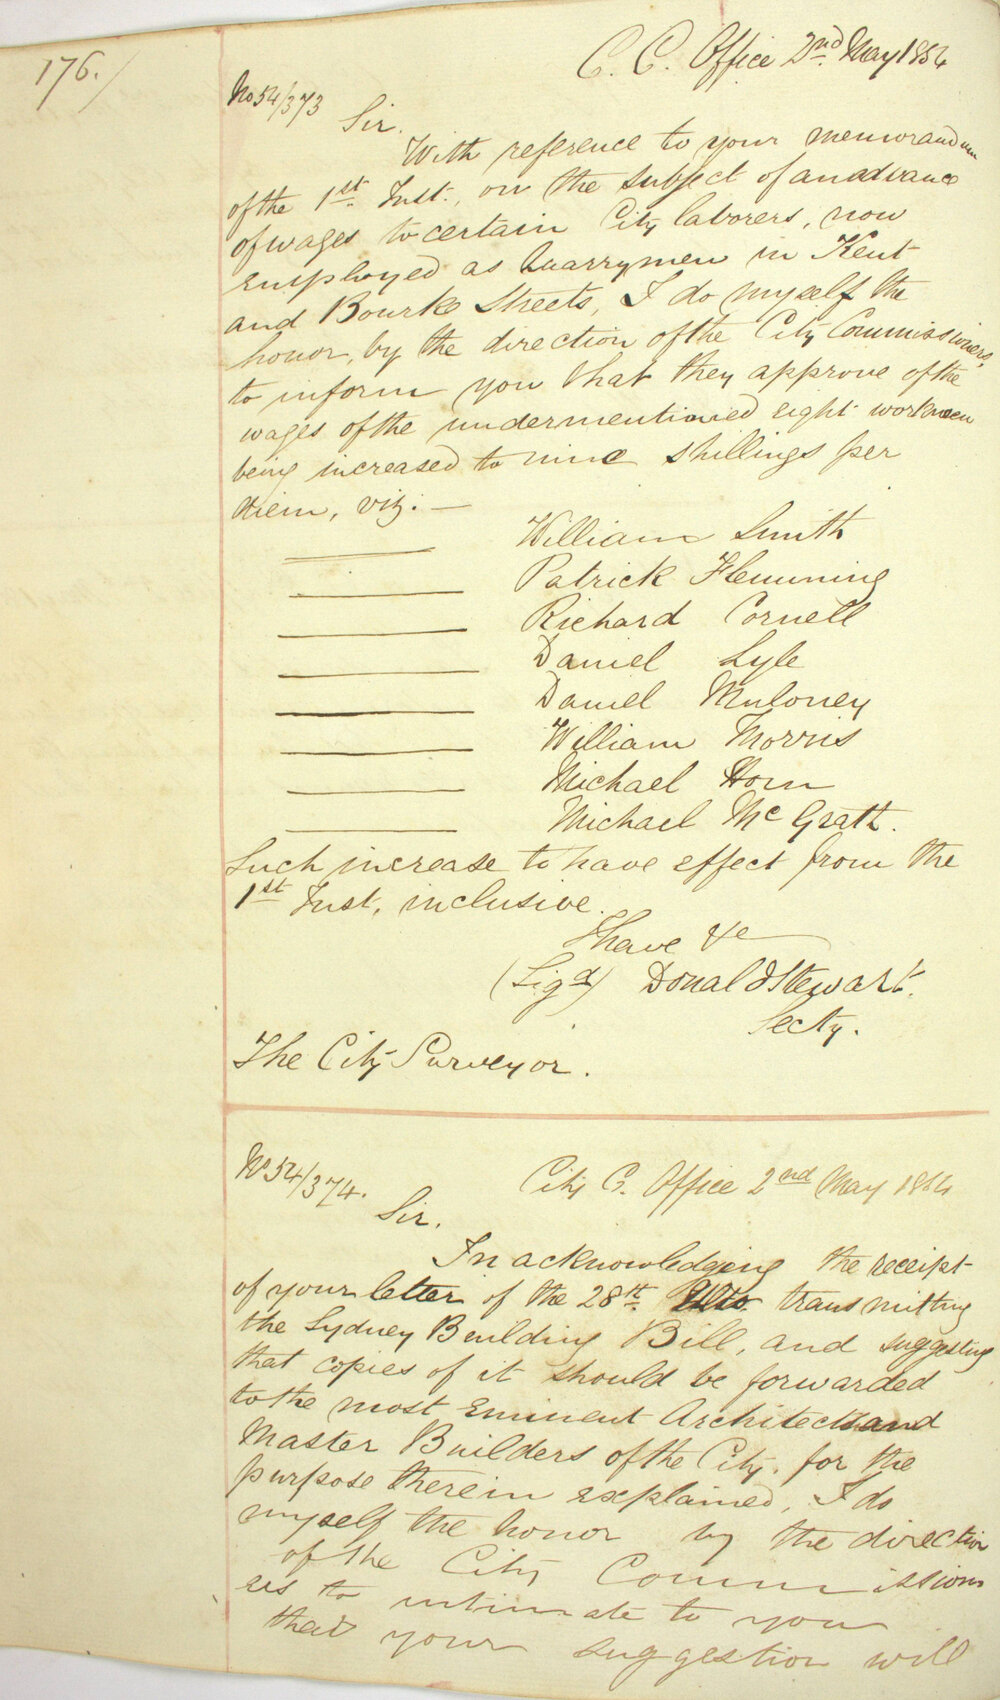 176.
C. C. Office 2nd May 1854
No 54/373
Sir.
With reference to your memorandum
of the 1st Inst., on the subject of an advance
of wages to certain City laborers, now
employed as Quarrymen in Kent
and Bourke Streets, I do myself the
honor, by the direction of the City Commissioners,
to inform you that they approve of the
wages of the undermentioned eight workmen
being increased to nine shillings per
diem, viz. —
William Smith
Patrick Flemming
Richard Cornell
Daniel Lyle
Daniel Muloney
William Morris
Michael Horn
Michael McGrath.
Such increase to have effect from the
1st Inst, inclusive.
I have &c
(Sigd) Donald Stewart.
Secty.
The City Surveyor.
No 54/374.
City C. Office 2nd May 1854
Sir.
In acknowledging the receipt
of your letter of the 28th Ulto transmitting
the Sydney Building Bill, and suggesting
that copies of it should be forwarded
to the most Eminent Architects and
Master Builders of the City, for the
purpose therein explained, I do
myself the honor by the direction
of the City Commission
ers to intimate to you
that your suggestion will